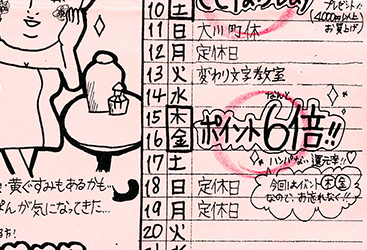 プレゼント!!
(4,000円以上
お買上げ)
10 土
11 日 大川町休
12 月 定休日
13 火 変わり文字教室
14 水
なんと
15 木
16 金 ポイント6倍!!
ハンパない還元率!!
17 土
18 日 定休日
今回はイベント木金
なので、お忘れなく!!
19 月 定休日
20 火
黄ぐすみもあるかも…
が気になってきた…